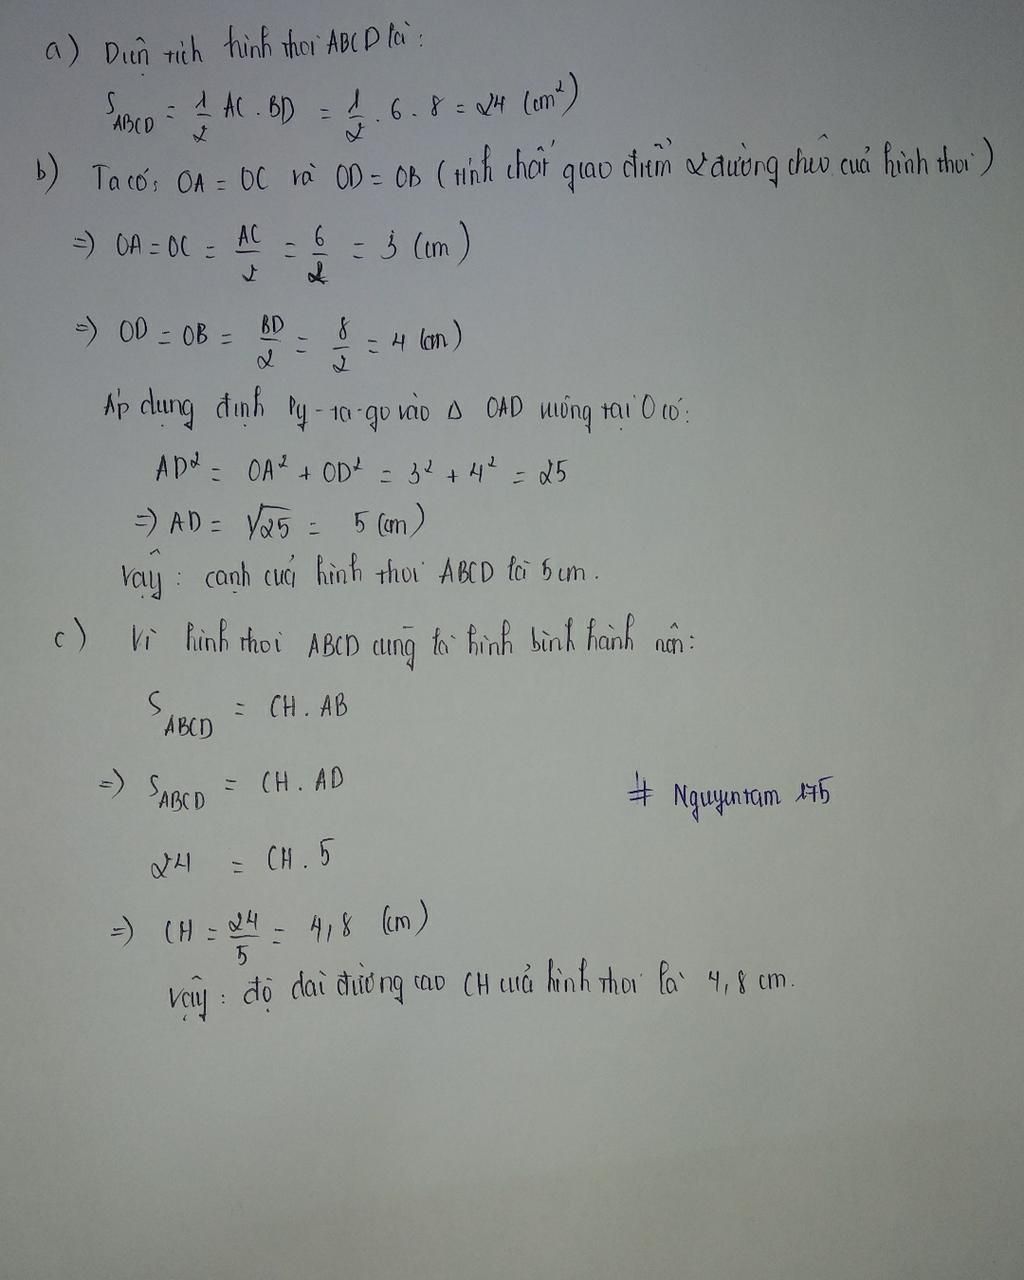 a) Diện tích hình thoi ABCD là:
S_ABCD = 1/2 AC . BD = 1/2 . 6 . 8 = 24 (cm²)
b) Ta có: OA = OC và OD = OB (tính chất giao điểm 2 đường chéo của hình thoi)
=> OA = OC = AC/2 = 6/2 = 3 (cm)
=> OD = OB = BD/2 = 8/2 = 4 (cm)
Áp dụng định Py-ta-go vào Δ OAD vuông tại O có:
AD² = OA² + OD² = 3² + 4² = 25
=> AD = √25 = 5 (cm)
Vậy: cạnh của hình thoi ABCD là 5cm.
c) Vì hình thoi ABCD cũng là hình bình hành nên:
S_ABCD = CH . AB
=> S_ABCD = CH . AD
# Nguyentam 175
24 = CH . 5
=> CH = 24/5 = 4,8 (cm)
Vậy: độ dài đường cao CH của hình thoi là 4,8 cm.